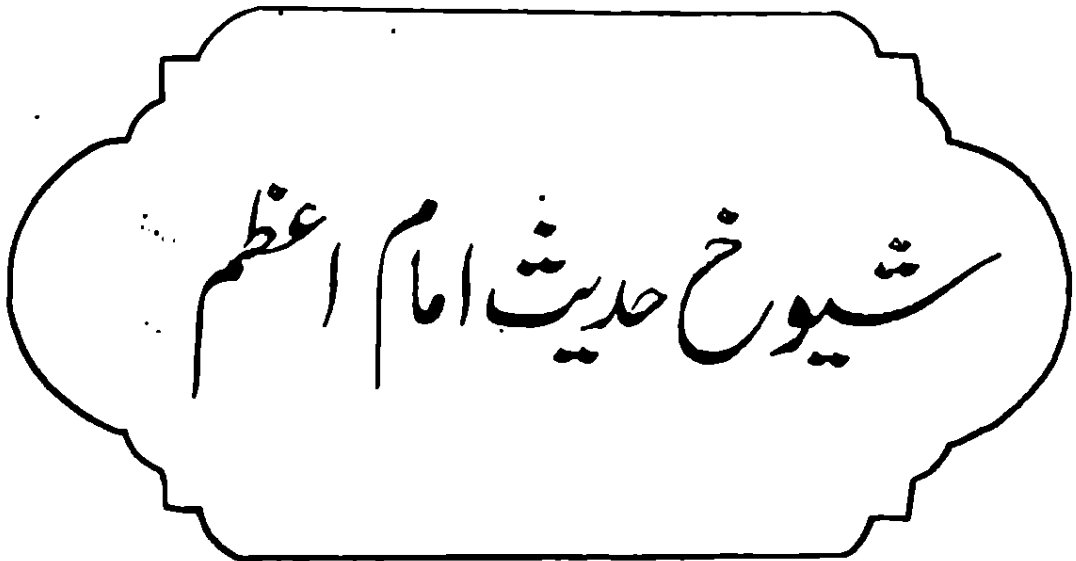 شیوخ حدیث امام اعظم